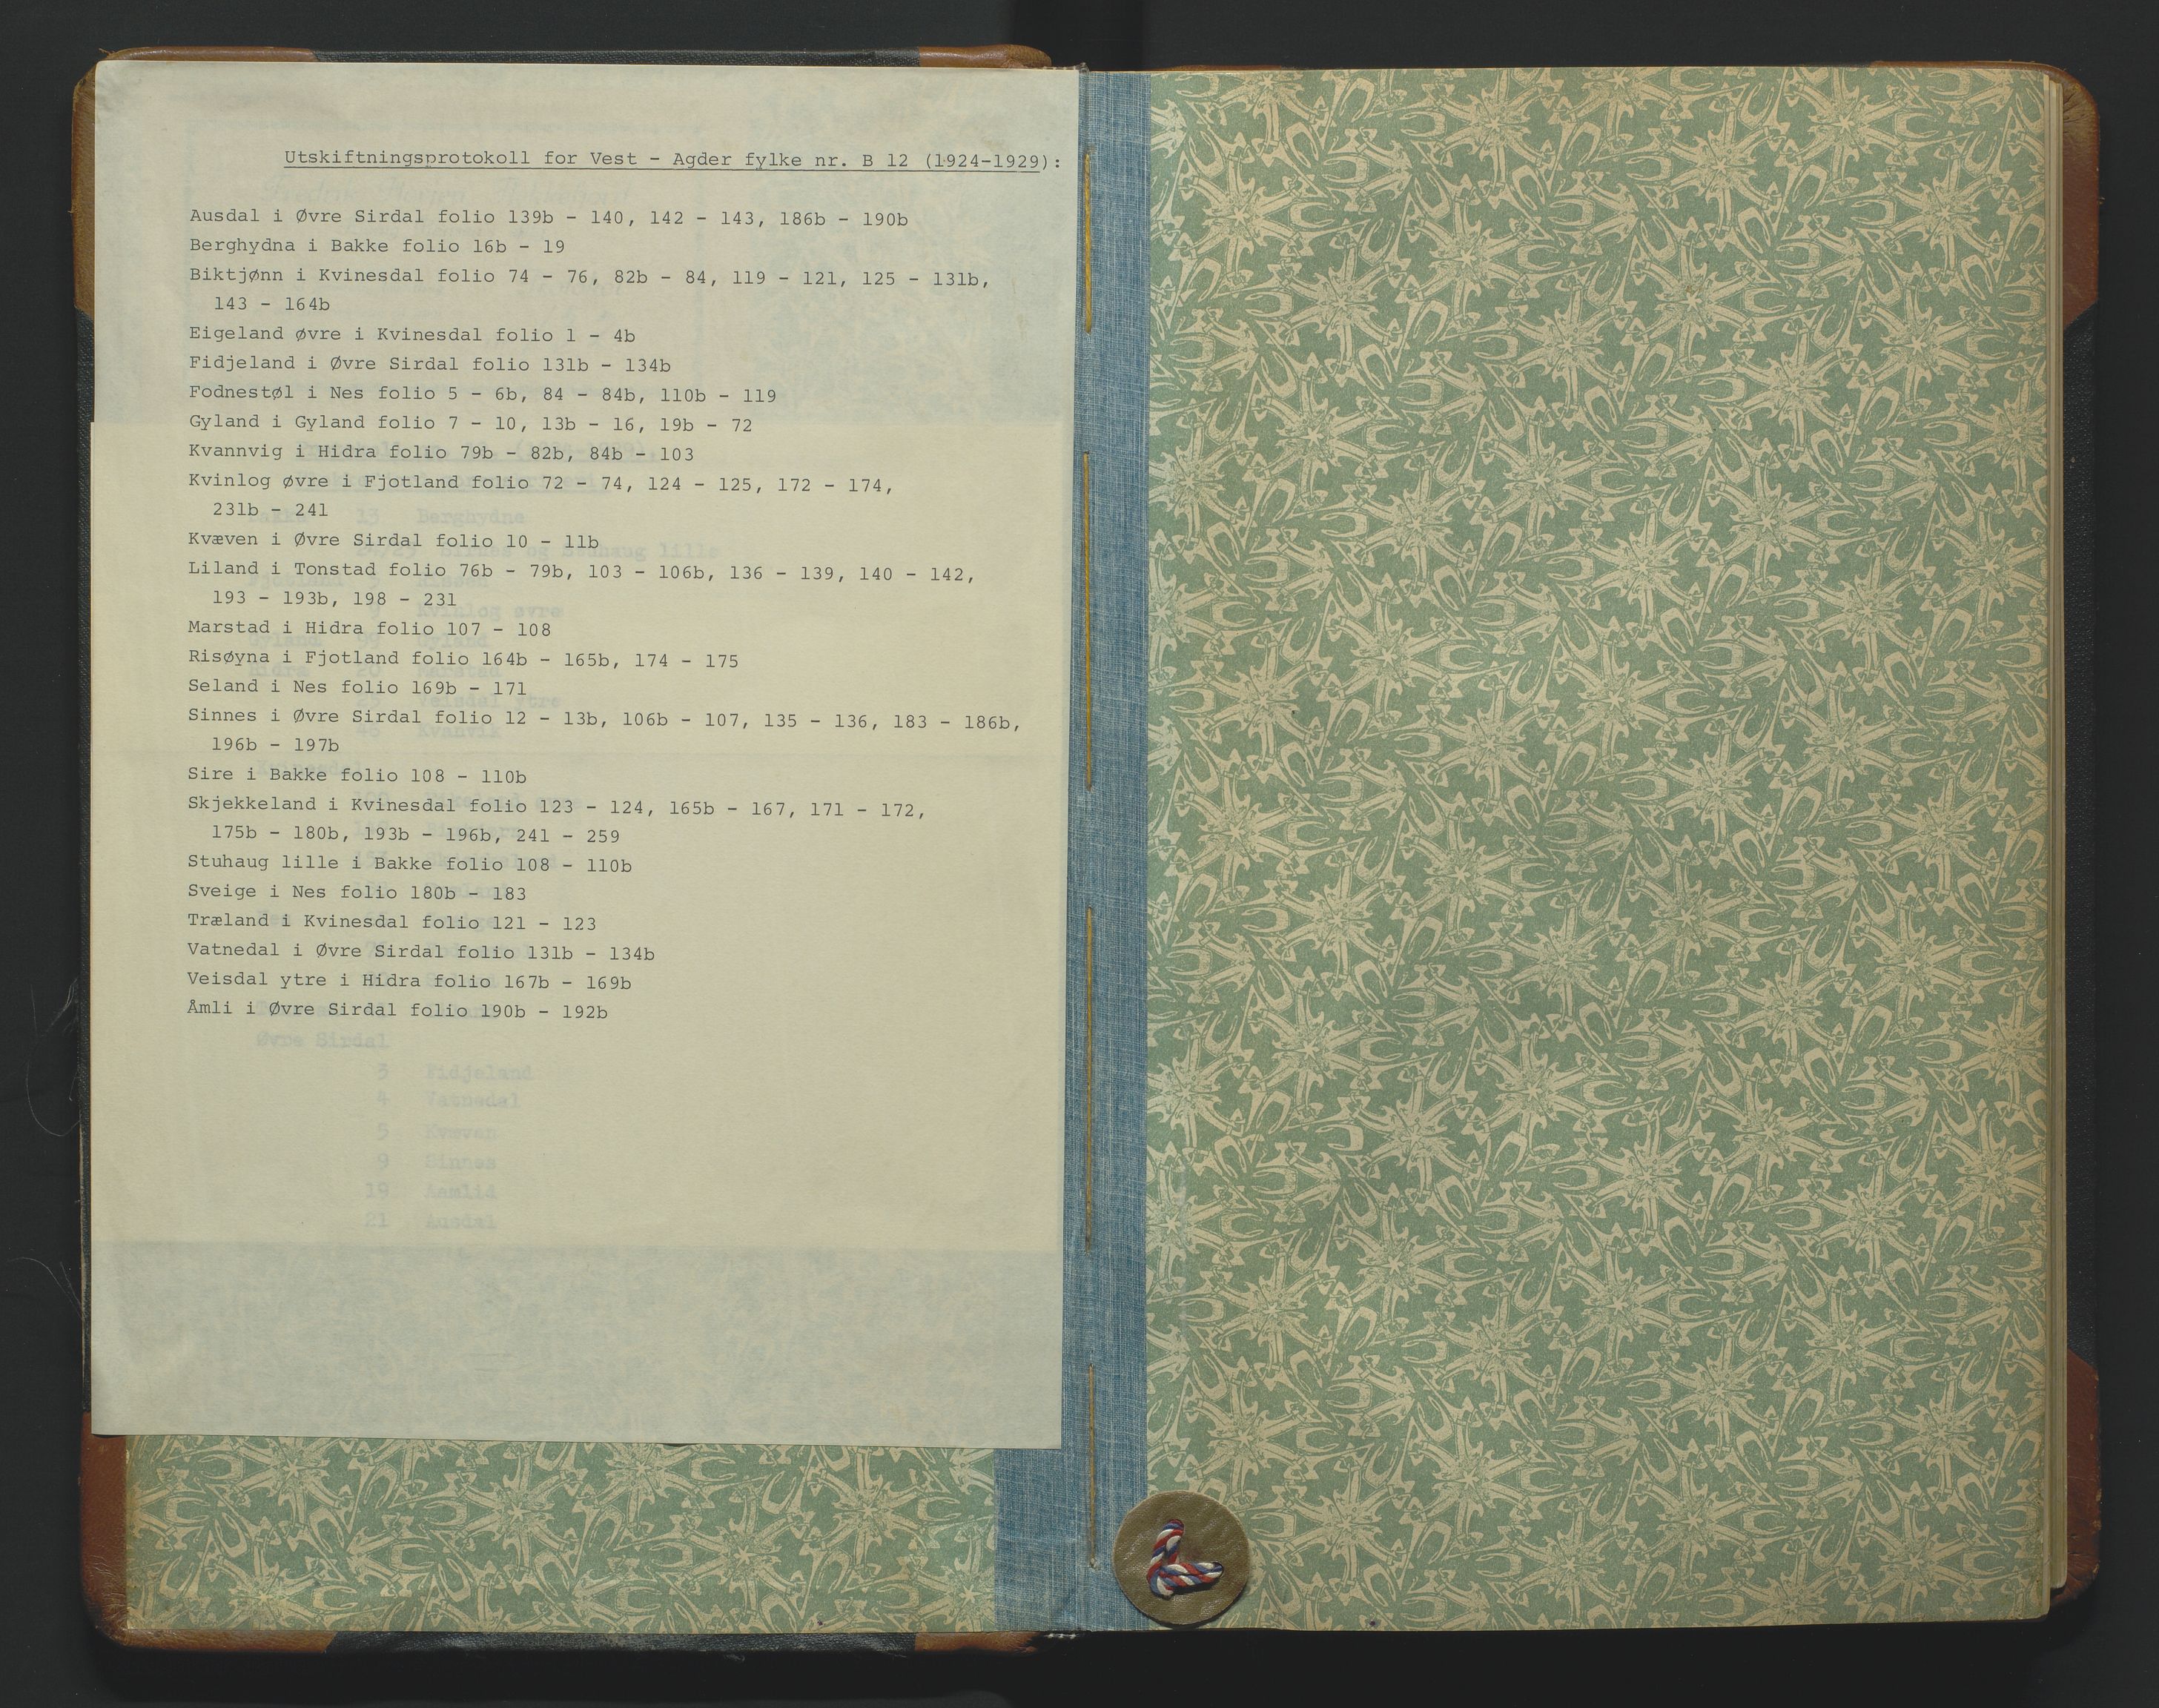 Utskiftningsprotokoll for Vest - Agder fylke nr. B 12 (1924-1929):
Ausdal i Øvre Sirdal folio 139b - 140, 142 - 143, 186b - 190b
Berghydna i Bakke folio 16b - 19
Biktjønn i Kvinesdal folio 74 - 76, 82b - 84, 119 - 121, 125 - 131b,
143 - 164b
Eigeland øvre i Kvinesdal folio 1 - 4b
Fidjeland i Øvre Sirdal folio 131b - 134b
Fodnestøl i Nes folio 5 - 6b, 84 - 84b, 110b - 119
Gyland i Gyland folio 7 - 10, 13b - 16, 19b - 72
Kvannvig i Hidra folio 79b - 82b, 84b - 103
Kvinlog øvre i Fjotland folio 72 - 74, 124 - 125, 172 - 174,
231b - 241
Kvæven i Øvre Sirdal folio 10 - 11b
Liland i Tonstad folio 76b - 79b, 103 - 106b, 136 - 139, 140 - 142,
193 - 193b, 198 - 231
Marstad i Hidra folio 107 - 108
Risøyna i Fjotland folio 164b - 165b, 174 - 175
Seland i Nes folio 169b - 171
Sinnes i Øvre Sirdal folio 12 - 13b, 106b - 107, 135 - 136, 183 - 186b,
196b - 197b
Sire i Bakke folio 108 - 110b
Skjekkeland i Kvinesdal folio 123 - 124, 165b - 167, 171 - 172,
175b - 180b, 193b - 196b, 241 - 259
Stuhaug lille i Bakke folio 108 - 110b
Sveige i Nes folio 180b - 183
Træland i Kvinesdal folio 121 - 123
Vatnedal i Øvre Sirdal folio 131b - 134b
Veisdal ytre i Hidra folio 167b - 169b
Åmli i Øvre Sirdal folio 190b - 192b
Øvre Sirdal
3 Fidjeland
4 Vatnedal
5 Kvæven
9 Sinnes
19 Aamlid
21 Ausdal